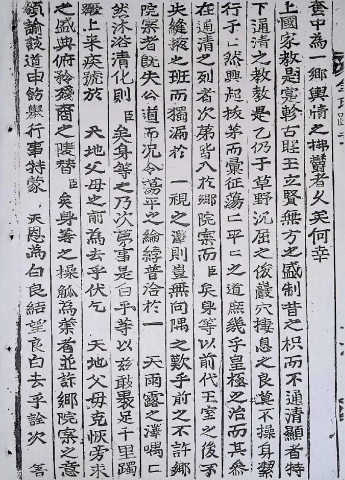 奮中為一鄕輿情之拂鬱者久矣何幸
上國家教是寔斡古旺王立賢無方之盛制昔之枳而不通清顯者特
下通清之教教是乙仍于草野沉屈之俊巖穴棲息之良莫不操身潔
行于亾然興起拔茅而彙征蕩亾平亾之道庶幾乎皇極之治而其參
在通清之列者次苐皆入於鄕院案而臣矣身等以前代王室之後不
夫縫掖之班而獨漏於 一視之澤則豈無向隅之歎乎前之不許鄕
院案者旣失公道而況令蕩平之綸綍普洽於一 天雨露之澤喁亾
然沐浴清化則臣矣身等之乃次第事是白乎等以玆敢裹足千里躅
䠱上来疾號於 天地父母之前為去乎伏乞 天地父母克恢旁求
之盛典俯矜殘裔之陵替臣矣身等之操觚為業者並許鄕院案之意
頟諭該道申飭擧行事特蒙 天恩為白良結望良白去乎詮次 善